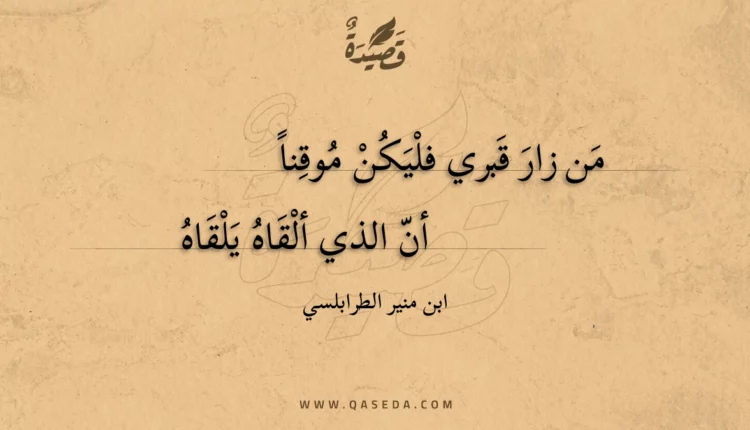 قَصِيْدَةٌ
مَن زارَ قَبري فلْيَكُنْ مُوقِناً
أنّ الذي ألْقَاهُ يَلْقَاهُ
ابن منير الطرابلسي
WWW.QASEDA.COM